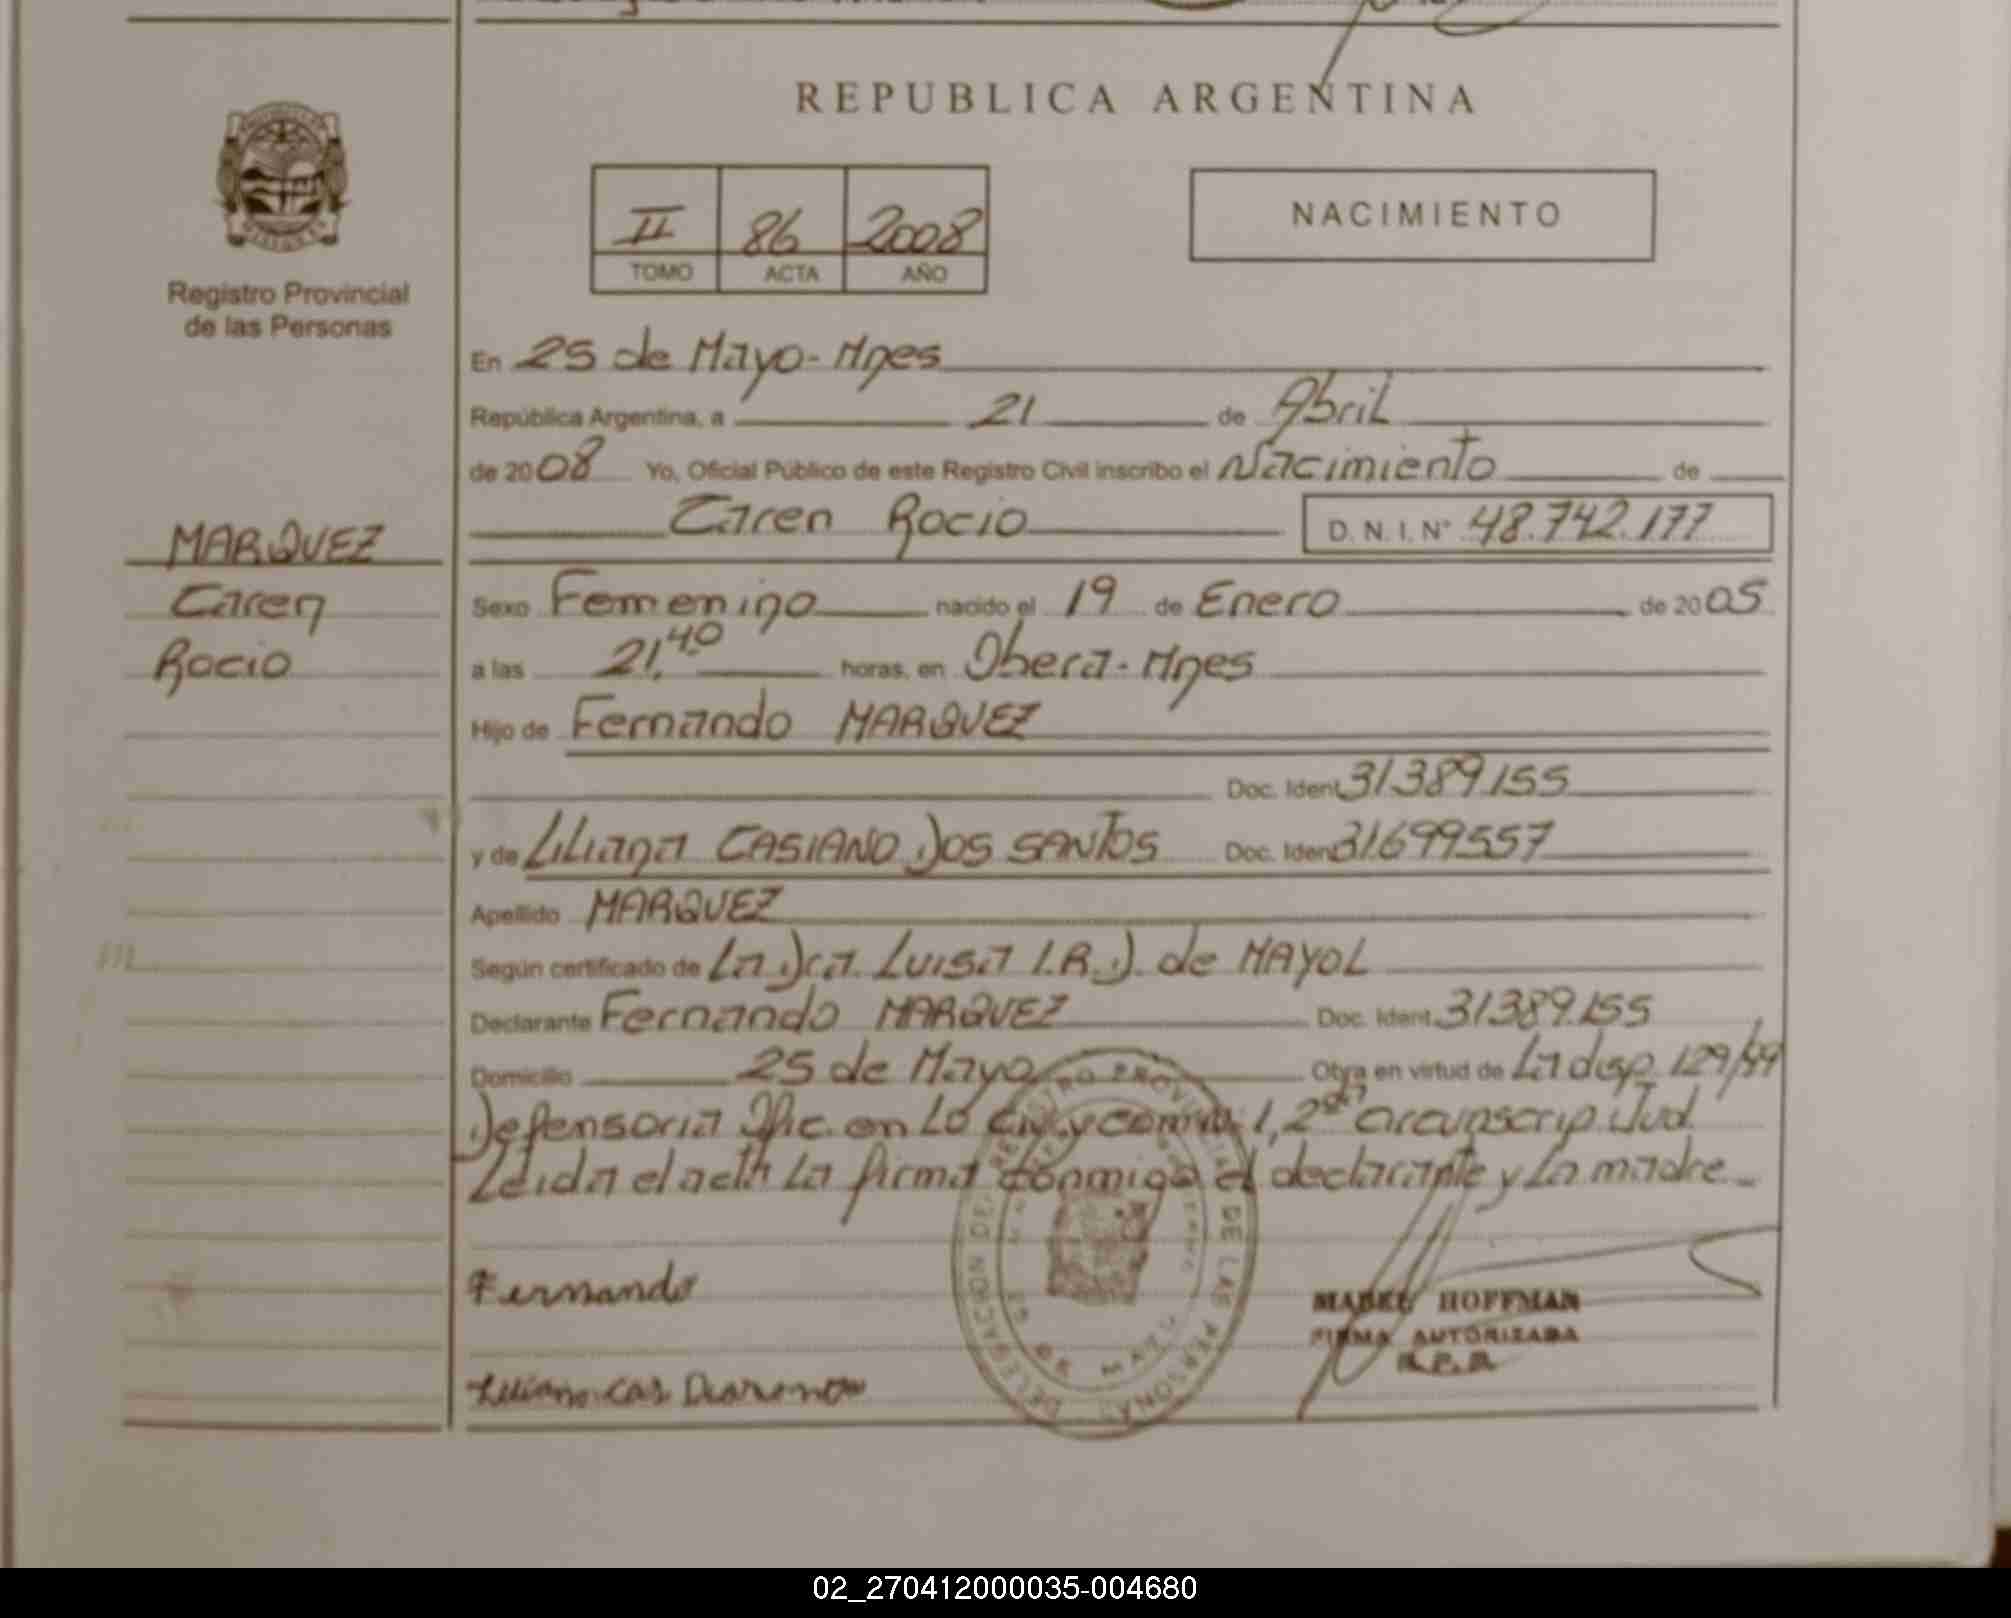 REPUBLICA ARGENTINA
II 86 2008
TOMO ACTA AÑO
NACIMIENTO
Registro Provincial
de las Personas
MARQUEZ
Caren
Rocio
En 25 de Mayo - Mnes
República Argentina, a 21 de Abril
de 2008 Yo, Oficial Público de este Registro Civil inscribo el Nacimiento de
Caren Rocio D. N. I. N° 48.742.177
Sexo Femenino nacido el 19 de Enero de 2005
a las 21,40 horas, en Obera - Mnes
Hijo de Fernando MARQUEZ
Doc. Ident 31389.155
y de Liliana CASIANO DOS SANTOS Doc. Ident 31.699557
Apellido MARQUEZ
Según certificado de La Dra. Luisa I.R.D. de MAYOL
Declarante Fernando MARQUEZ Doc. Ident. 31389.155
Domicilio 25 de Mayo Obra en virtud de La disp. 129/99
Defensoria Ofic. en Lo Civ. y com. 1, 2da circunscrip. Jud.
Leida el acta La firma conmigo el declarante y La madre
Fernando
MABEL HOFFMAN
FIRMA AUTORIZADA
R.P.P.
DELEGACION DEL REGISTRO PROVINCIAL DE LAS PERSONAS
25 DE MAYO
02_270412000035-004680